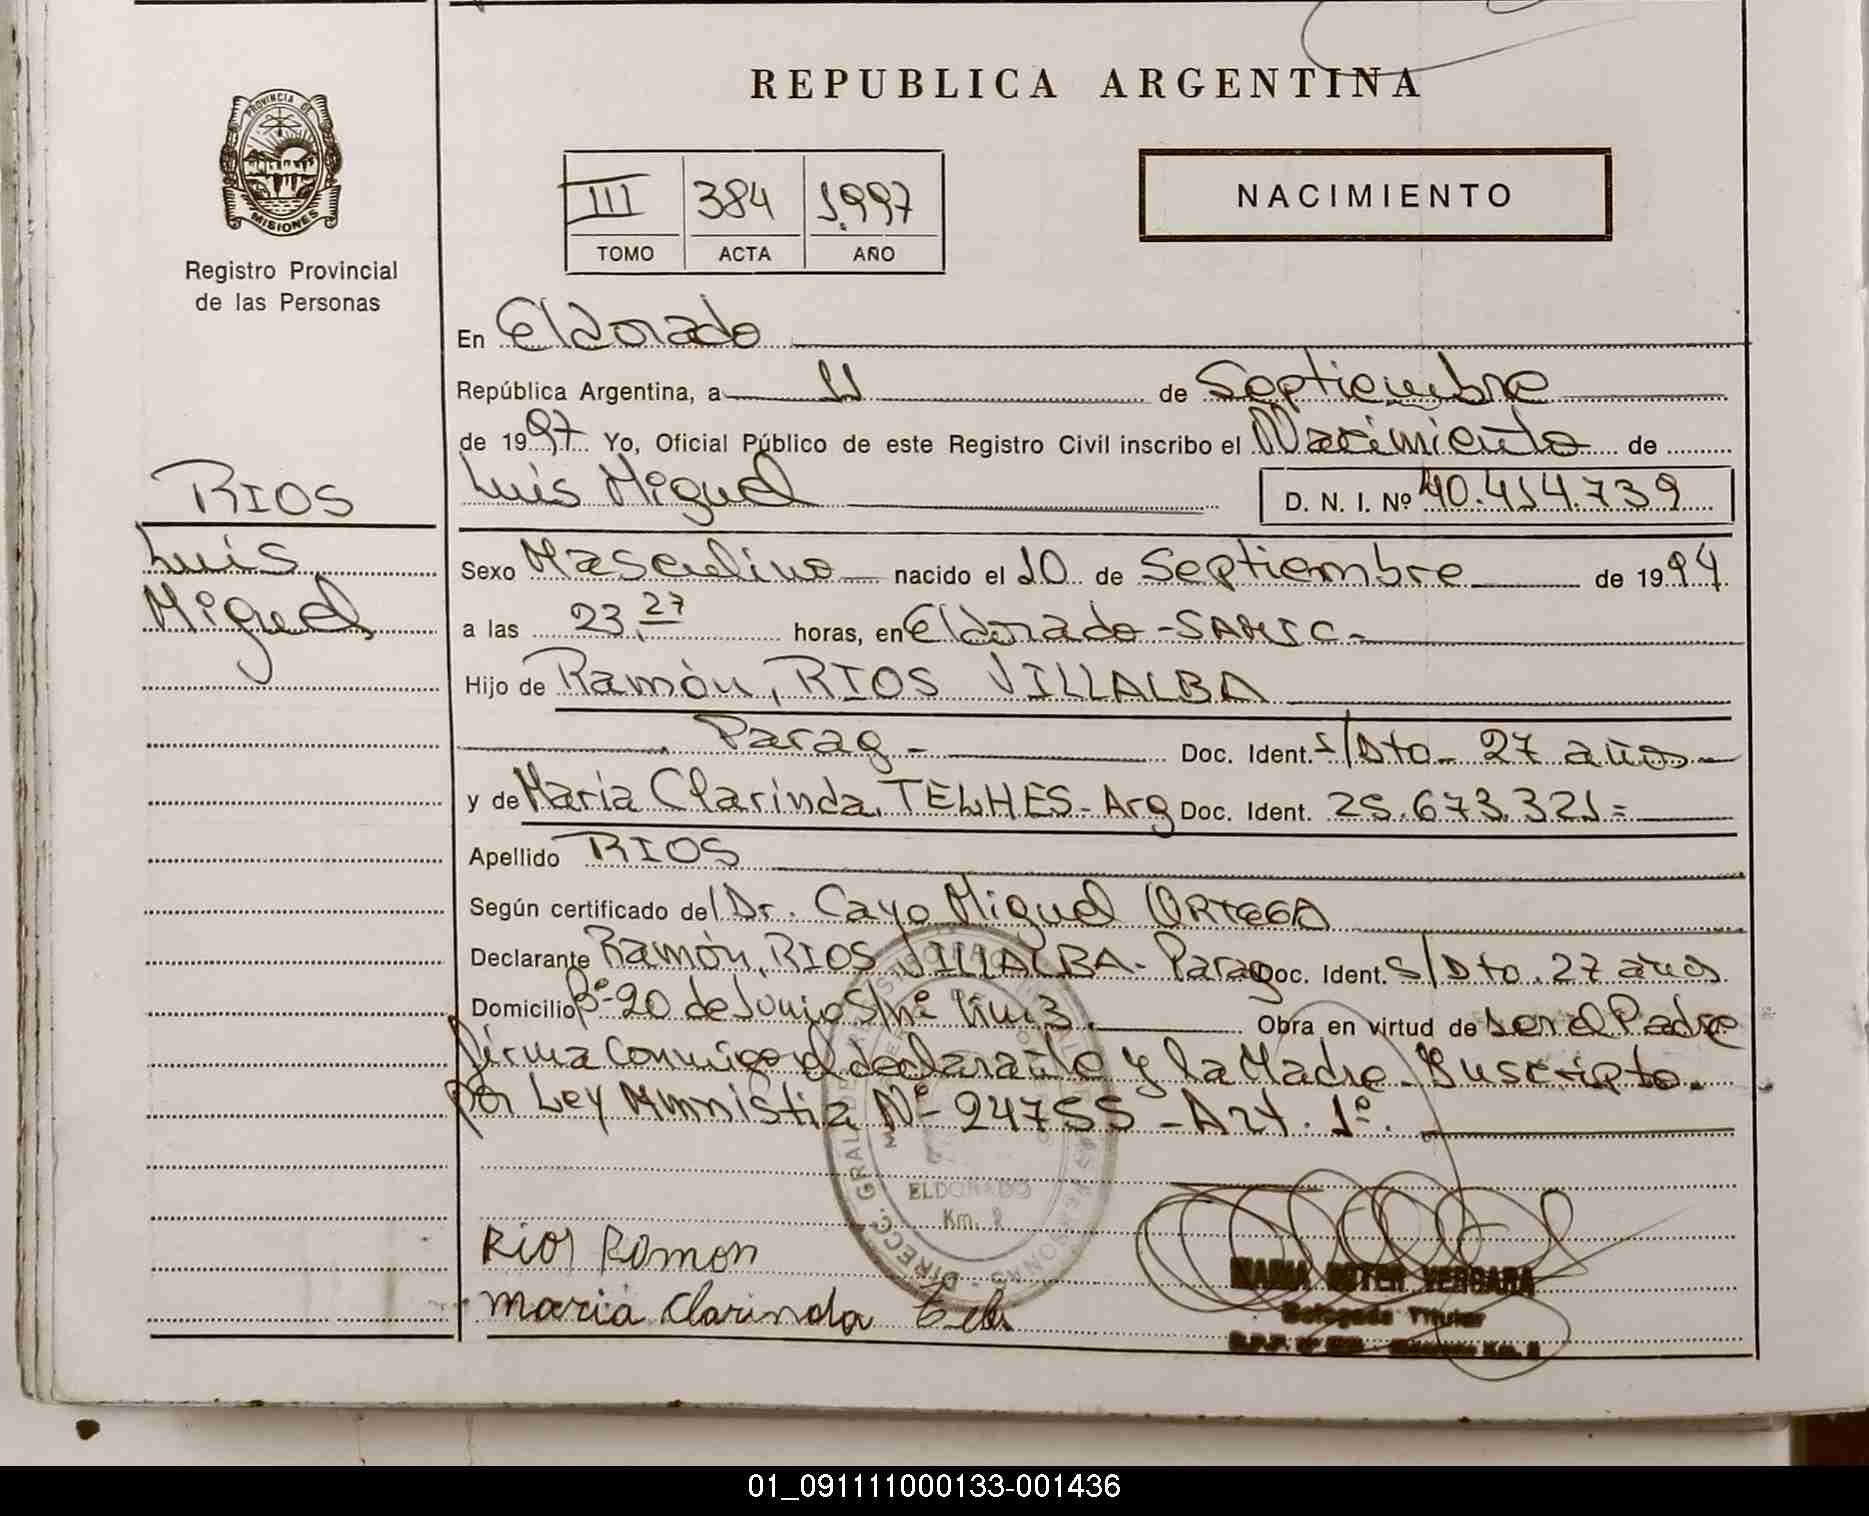 REPUBLICA ARGENTINA
PROVINCIA DE
MISIONES
Registro Provincial
de las Personas
III 384 1.997
TOMO ACTA AÑO
NACIMIENTO
En Eldorado
República Argentina, a 11 de Septiembre
de 1997. Yo, Oficial Público de este Registro Civil inscribo el Nacimiento de
Luis Miguel D. N. I. Nº 40.414.739
RIOS
Luis
Miguel
Sexo Masculino nacido el 10 de Septiembre de 1994
a las 23.27 horas, en Eldorado - SAMIC.-
Hijo de Ramón, RIOS VILLALBA
Parag - Doc. Ident. s/Dto - 27 años -
y de María Clarinda, TELHES - Arg Doc. Ident. 25.673.321 =
Apellido RIOS
Según certificado del Dr. Cayo Miguel ORTEGA
Declarante Ramón, RIOS VILLALBA - Parag Doc. Ident. s/Dto. 27 años
Domicilio Bº-20 de Junio S/nº Km 3. Obra en virtud de ser el Padre
firma conmigo el declarante y la Madre. Suscripto.
por Ley Amnistia Nº- 24755 - Art. 1º.
ELDORADO
Km.
DIRECC. GRAL.
Rios Ramon
Maria Clarinda
MARIA ESTER VERGARA
Delegada Titular
01_091111000133-001436